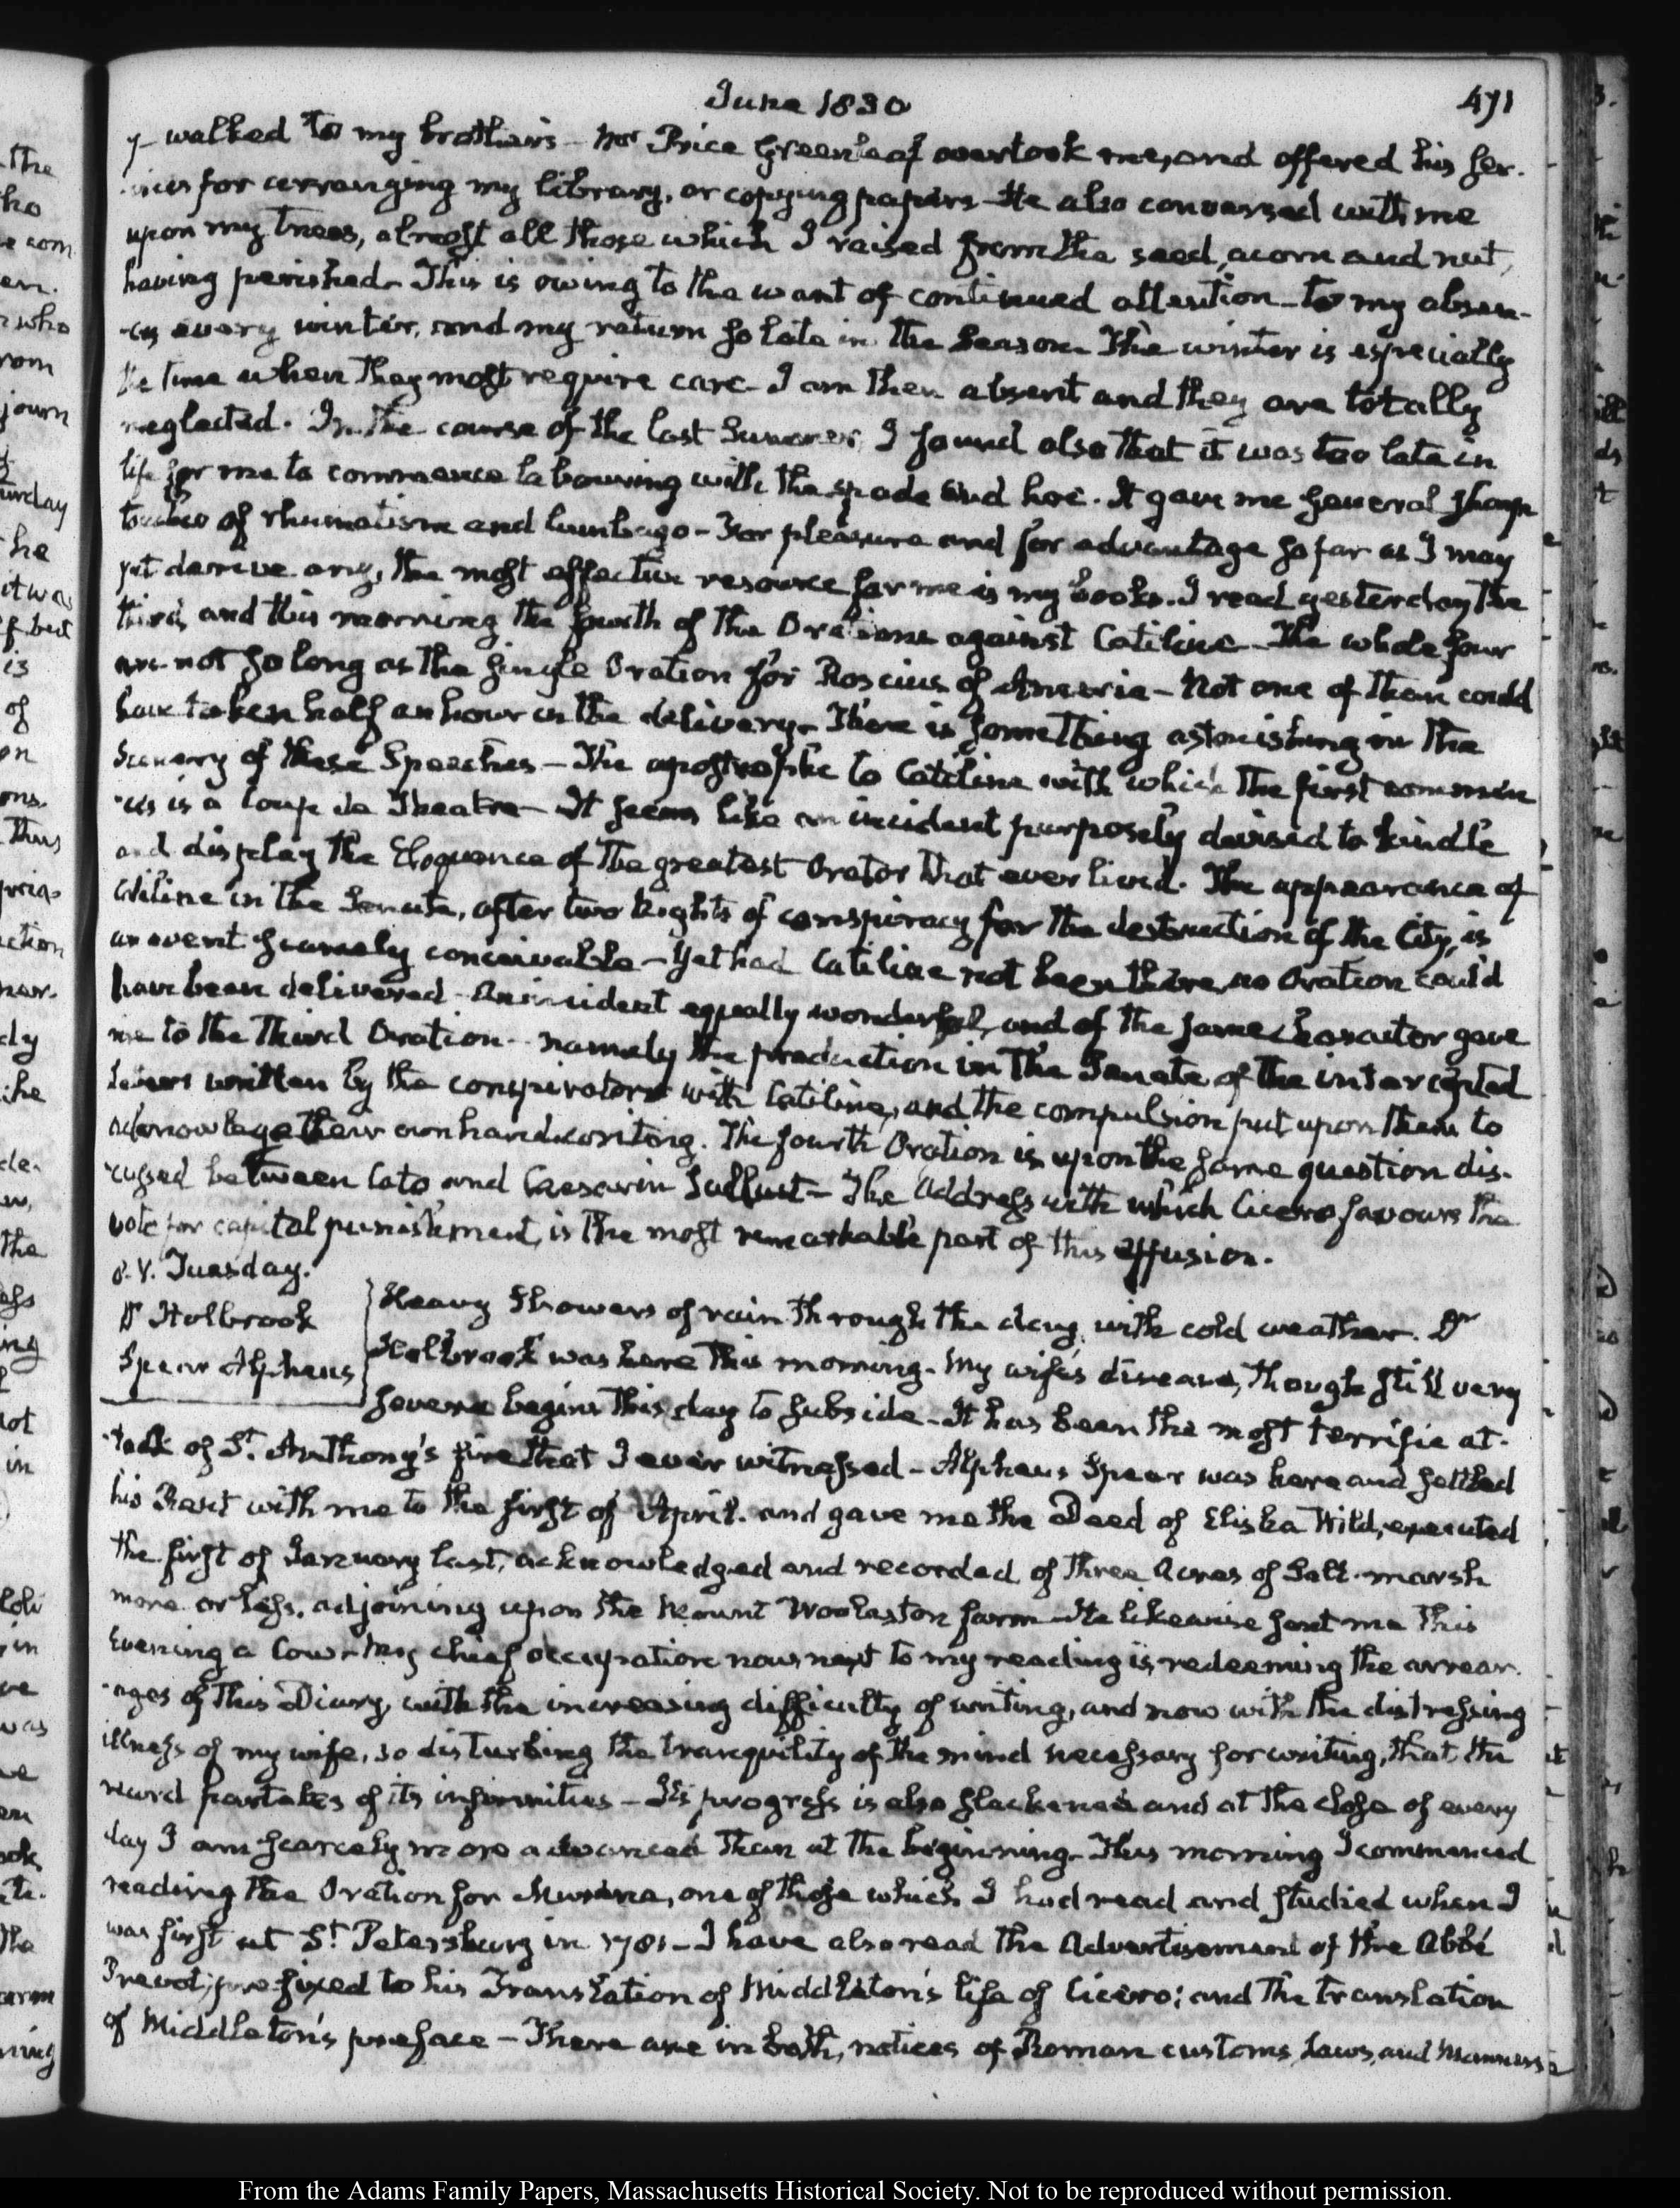 June 1830
471
I walked to my brother's - Mr Price Greenleaf overtook me, and offered his ser-
vices for arranging my library, or copying papers - He also conversed with me
upon my trees, almost all those which I raised from the seed, acorn and nut,
having perished. This is owing to the want of continued attention - to my absen-
ces every winter, and my return so late in the Season. The winter is especially
the time when they most require care - I am then absent and they are totally
neglected. In the course of the last Summer, I found also that it was too late in
life for me to commence labouring with the spade and hoe. It gave me several sharp
touches of rhumatism and lumbago - For pleasure and for advantage so far as I may
yet derive any, the most effective resource for me is my books. I read yesterday the
third, and this morning the fourth of the Orations against Catiline - The whole four
are not so long as the single Oration for Roscius of Ameria - Not one of them could
have taken half an hour in the delivery - There is something astonishing in the
Scenery of these Speeches - The apostrophe to Catiline with which the first commen
ces is a Coup de Theatre - It seems like an incident purposely devised to kindle
and display the Eloquence of the greatest Orator that ever lived. The appearance of
Catiline in the Senate, after two Nights of conspiracy for the destruction of the City, is
an event scarcely conceivable - Yet had Catiline not been there, no Oration could
have been delivered - An incident equally wonderful, and of the same Character gave
rise to the Third Oration - namely the production in the Senate of the intercepted
Letters written by the conspirators with Catiline, and the compulsion put upon them to
acknowlege their own handwriting. The fourth Oration is upon the same question dis-
cussed between Cato and Caesar in Sallust - The Address with which Cicero favours the
vote for capital punishment, is the most remarkable part of this effusion.
8. V. Tuesday.
Dr Holbrook
Spear Alpheus
Heavy Showers of rain through the day, with cold weather. Dr
Holbrook was here this morning. My wife's disease, though still very
severe begins this day to subside - It has been the most terrific at-
tack of St. Anthony's fire that I ever witnessed - Alpheus Spear was here and settled
his Rent with me to the first of April. and gave me the Deed of Elisha Wild, executed
the first of January last, acknowledged and recorded of three Acres of Salt-marsh
more or less, adjoining upon the Mount Woolaston farm - He likewise sent me this
Evening a Cow - My chief occupation now next to my reading is redeeming the arrear-
ages of this Diary, with the increasing difficulty of writing, and now with the distressing
illness of my wife, so disturbing the tranquility of the mind necessary for writing, that the
record partakes of its infirmities - Its progress is also slackened and at the close of every
day I am scarcely more advanced than at the beginning - This morning I commenced
reading the Oration for Murena, one of those which I had read and studied when I
was first at St. Petersburg in 1781 - I have also read the Advertisement of the Abbé
Prevot, prefixed to his Translation of Middleton's life of Cicero; and the translation
of Middleton's preface - There are in both, notices of Roman customs, Laws, and Manners
From the Adams Family Papers, Massachusetts Historical Society. Not to be reproduced without permission.